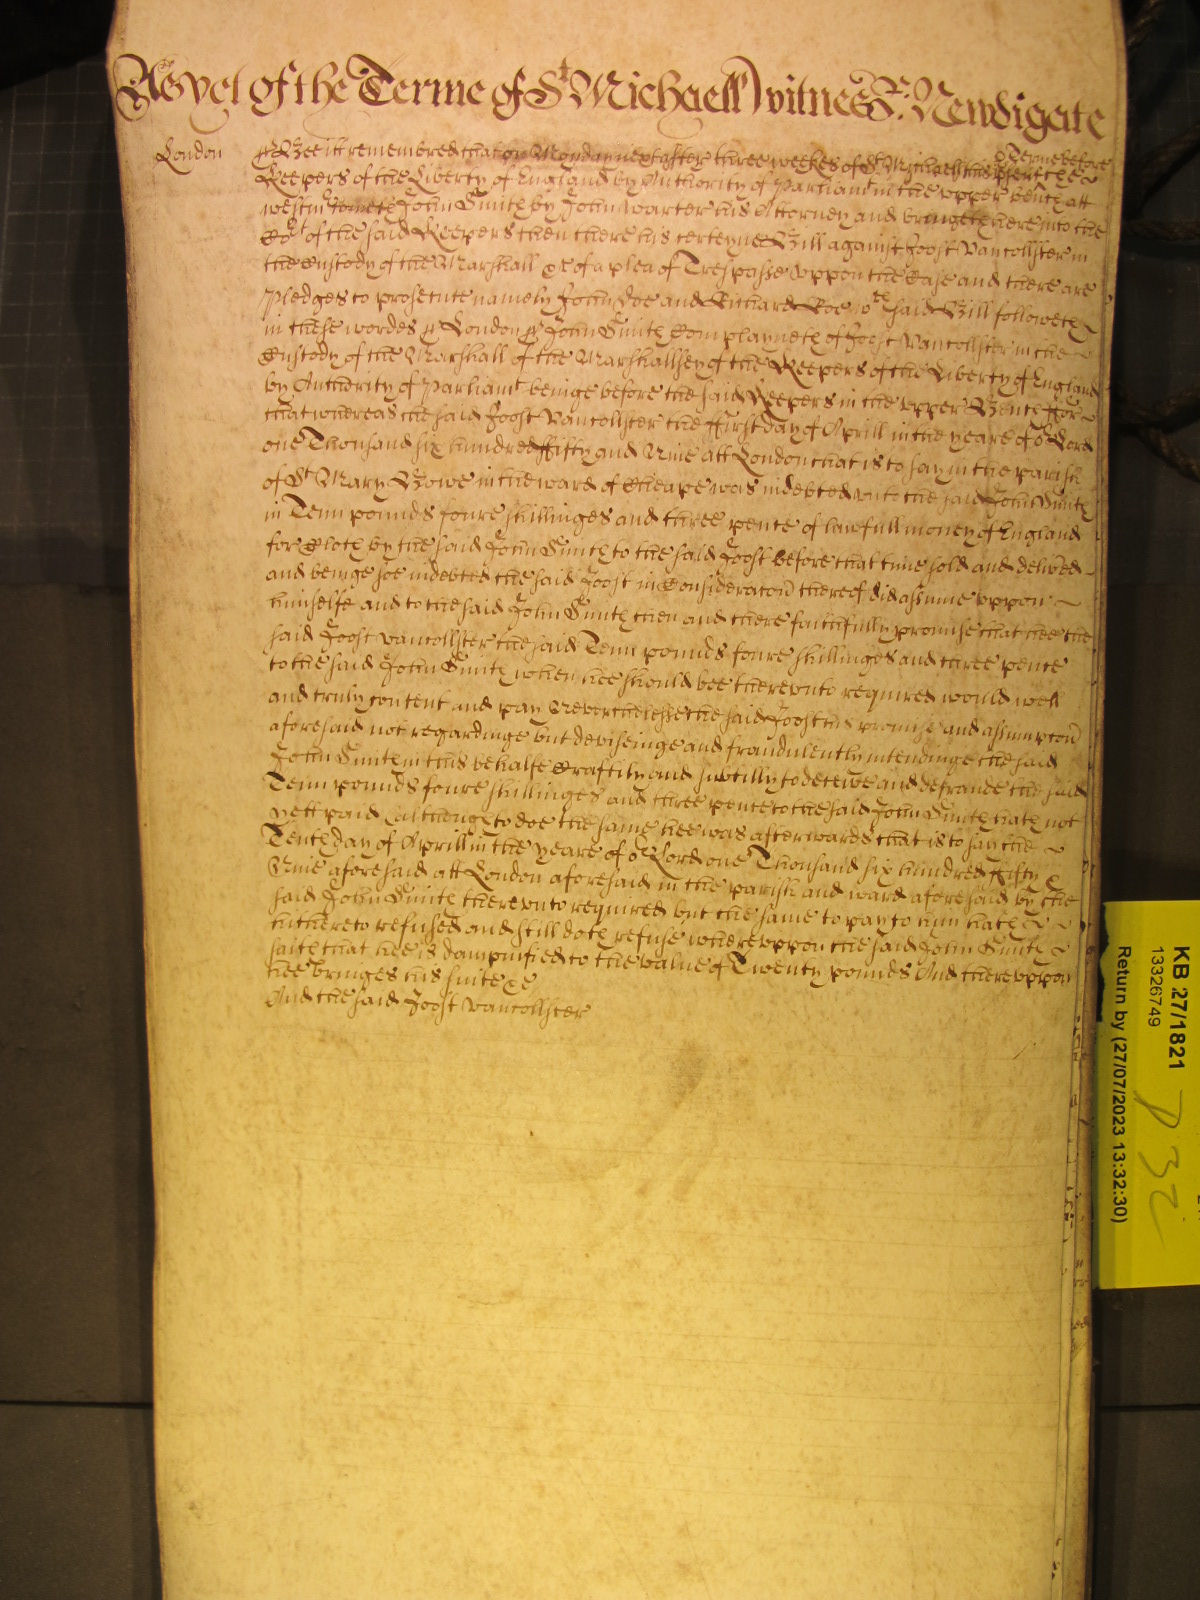 As yet of the Terme of St Michaell witnes R: Newdigate
London
Bee it remembred that on Monday next after three weekes of St Michaell this Terme before
Keepers of the Liberty of England by Authority of Parliamt in the vpper bench att
westm Cometh John Smith by John warter his Attorney and bringeth here into the
Cort of the said Keepers then there his certeyne Bill against Joost Vancollster in
the Custody of the Marshall &c of a plea of Trespasse vppon the Case and there are
pledges to prosecute namely John Doe and Richard Roe wch said Bill followeth
in these wordes London John Smith Complayneth of Joost Vancollster in the
Custody of the Marshall of the Marshallsey of the Keepers of the Liberty of England
by Authority of Parliamt beinge before the said Keepers in the vpper Bench ffor
that whereas the said Joost Vancollster the ffirst day of Aprill in the yeare of or Lord
one Thousand six hundred ffifty and Nine att London that is to say in the parish
of St Mary Bowe in the ward of Cheape was indebted vnto the said John Smith
in Tenn pounds foure shillinges and three pence of lawfull money of England
for Cloth by the said John Smith to the said Joost before that time sold and delivred
and beinge soe indebted the said Joost in Consideracon thereof did assume vppon
himselfe and to the said John Smith then and there faithfully promise that hee the
said Joost vancollster the said Tenn pounds foure shillinges and three pence
to the said John Smith when hee should bee therevnto required would well
and truly content and pay Neverthelesse the said Joost his promise and assumpcon
aforesaid not regardinge but deviseinge and fraudulently intendinge the said
John Smith in this behalfe Craftily and subtilly to deceive and defraude the said
Tenn pounds foure shillinges and three pence to the said John Smith hath not
yett paid (although to doe the same hee was afterwards that is to say the
Tenth day of Aprill in the yeare of or Lord one Thousand six hundred ffifty &
Nine aforesaid att London aforesaid in the parish and ward aforesaid by the
said John Smith therevnto required but the same to pay to him hath
hithereto refused and still doth refuse wherevppon the said John Smith
saith that hee is dampnified to the value of Twenty pounds And therevppon
hee bringes his suite &c
And the said Joost Vancollster
KB 27/1821
13326749
Return by (27/07/2023 13:32:30)